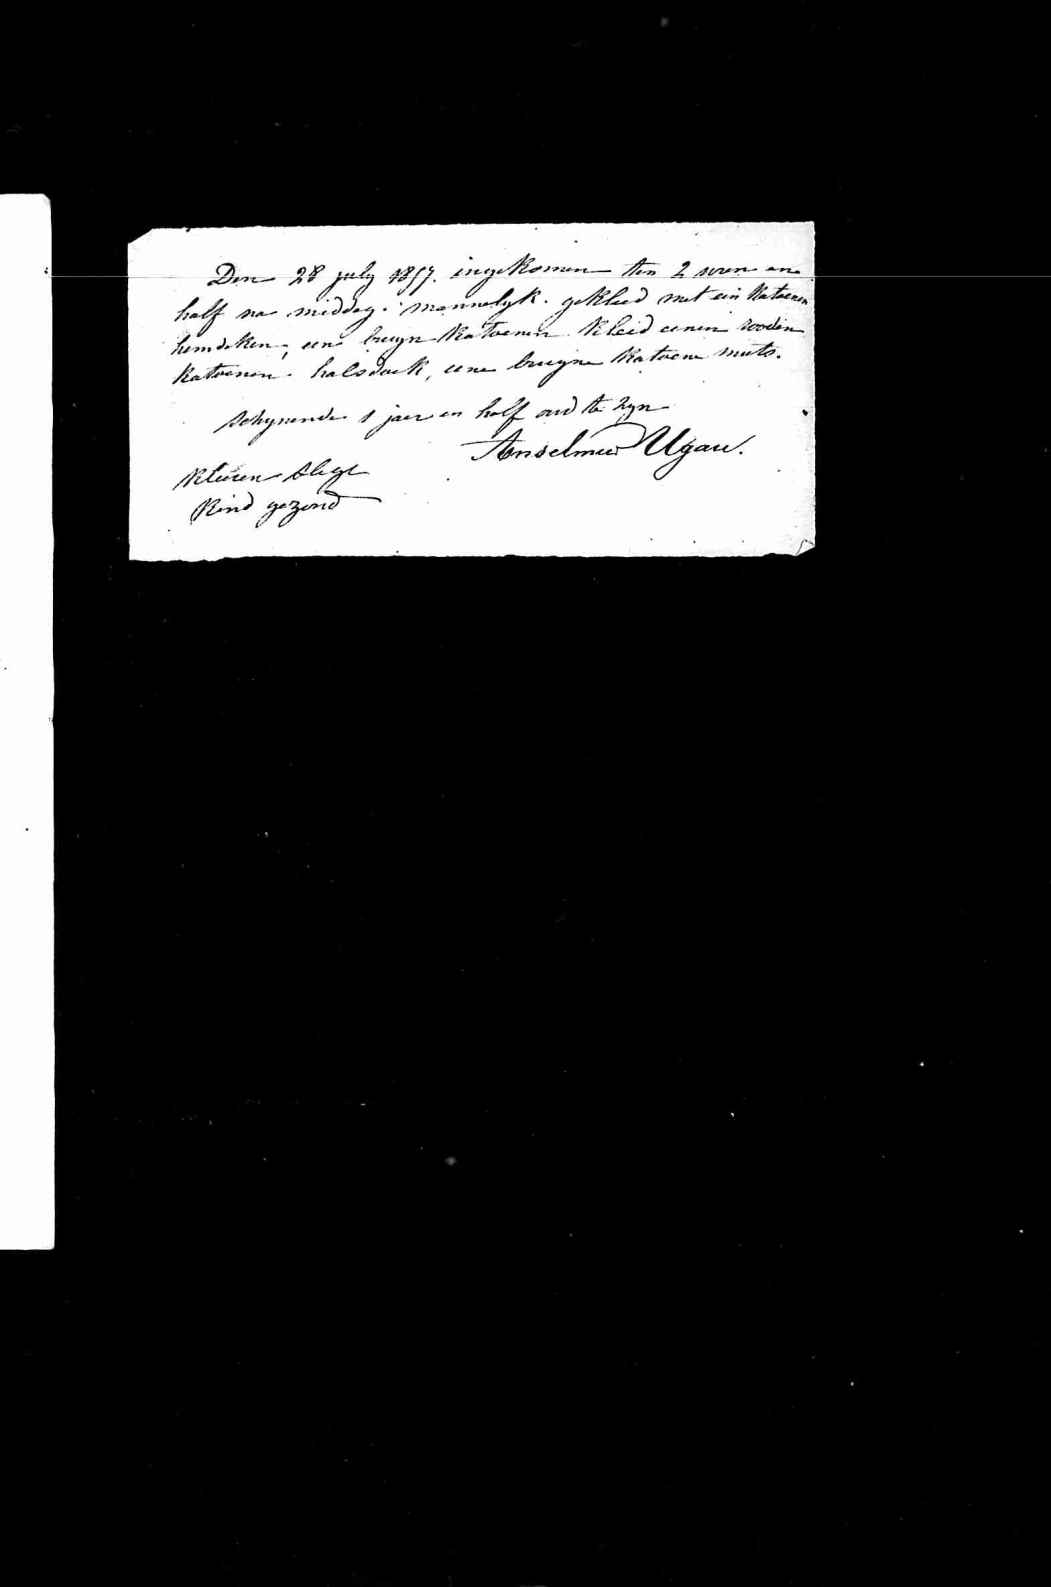 Den 28 july 1857. ingekomen ten 2 uren en
half na middag. mannelyk. gekleed met een katoenen
hemdeken, een bruyn katoenen kleid eenen rooden
katoenen halsdoek, eene bruyne katoene muts.
schynende 1 jaer en half oud te zyn
Anselmus Ugau.
kleeren slegt
kind gezond